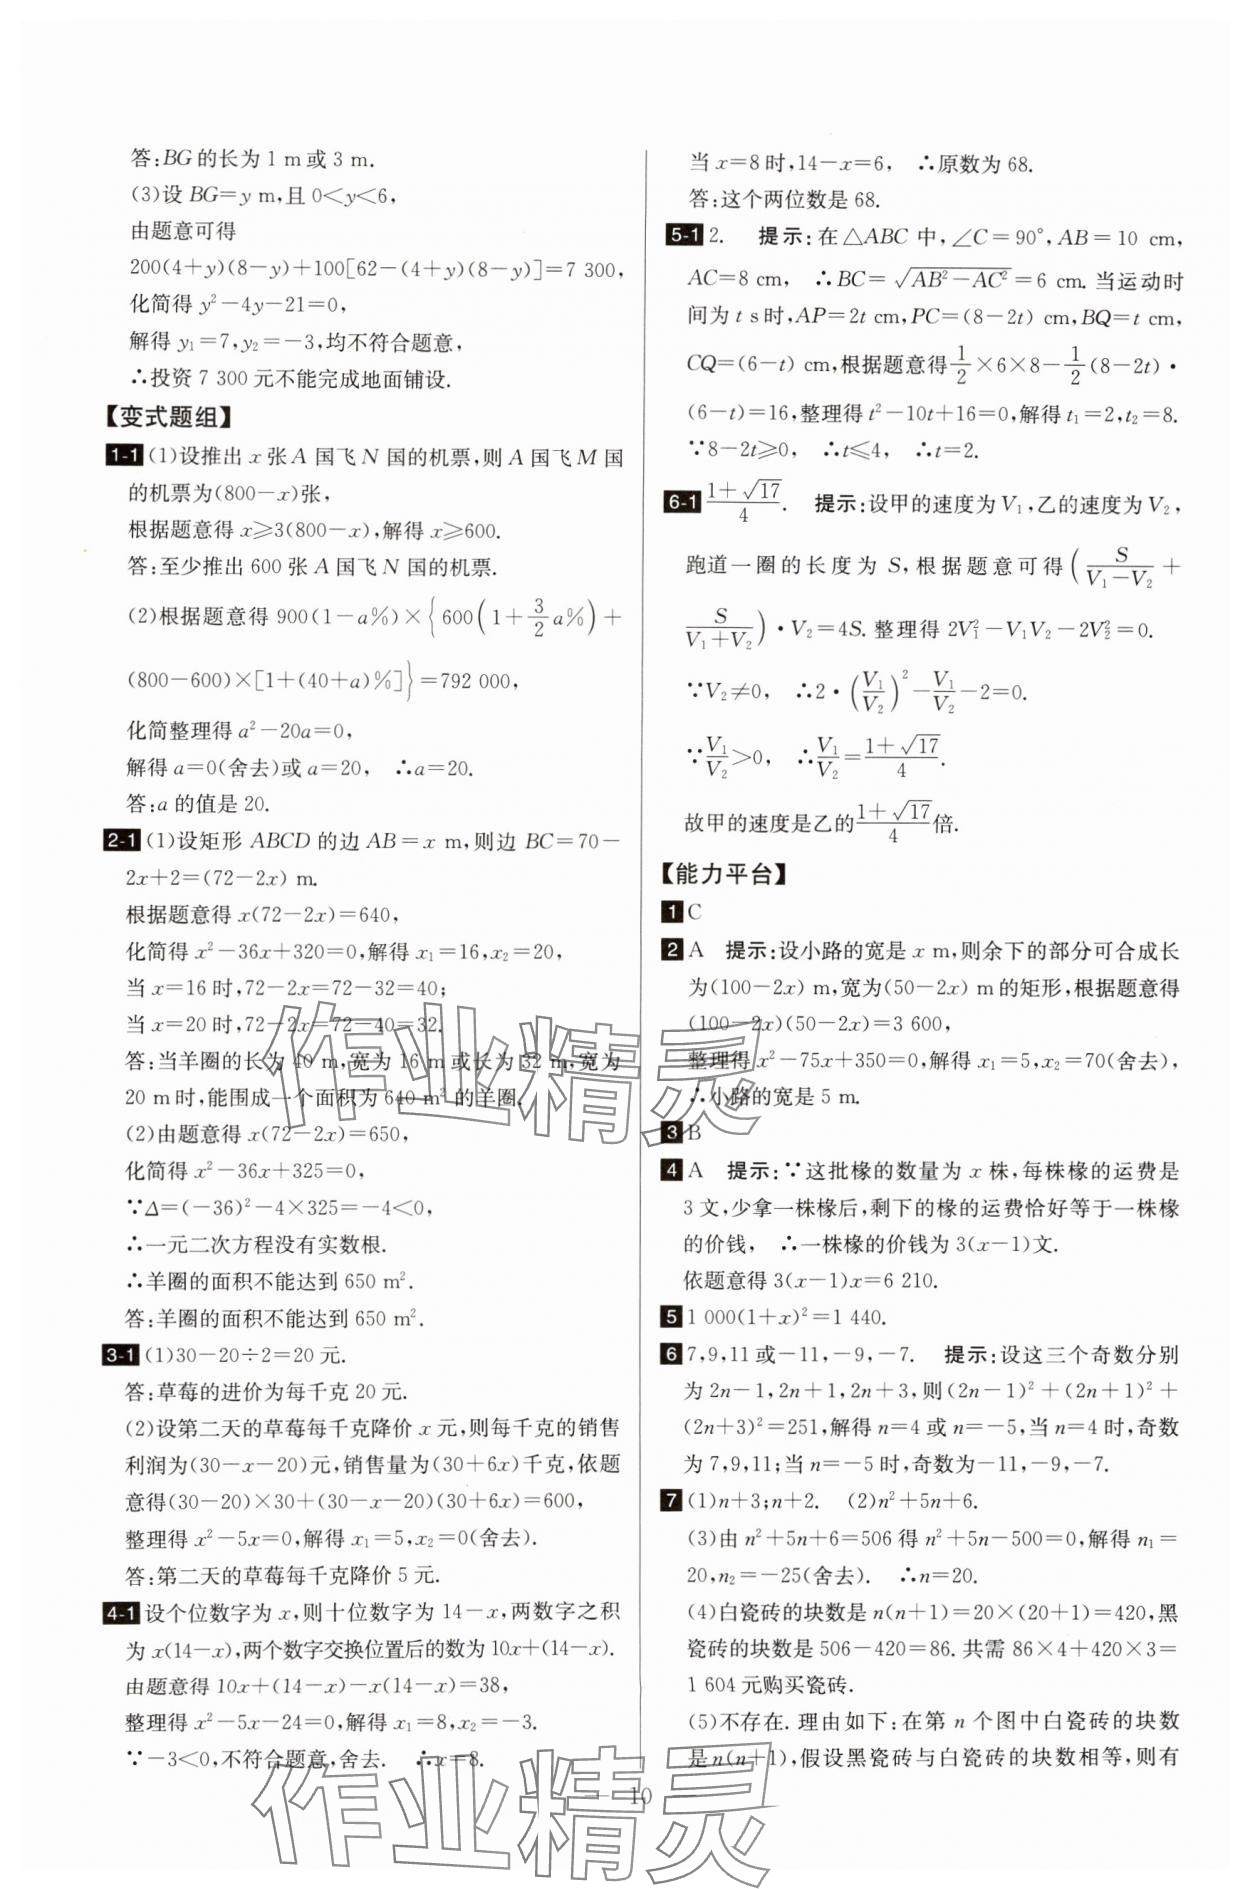 答:BG的长为1 m或3 m.
(3)设BG=y m,且0<y<6,
由题意可得
200(4+y)(8-y)+100[62-(4+y)(8-y)]=7 300,
化简得 y²-4y-21=0,
解得 y₁=7,y₂=-3,均不符合题意,
∴投资7 300元不能完成地面铺设.
【变式题组】
1-1 (1)设推出x张A国飞N国的机票,则A国飞M国
的机票为(800-x)张,
根据题意得x≥3(800-x),解得x≥600.
答:至少推出600张A国飞N国的机票.
(2)根据题意得 900(1-a%)×{600(1+3/2a%)+
(800-600)×[1+(40+a)%]}=792 000,
化简整理得a²-20a=0,
解得a=0(舍去)或a=20, ∴a=20.
答:a的值是20.
2-1 (1)设矩形ABCD的边AB=x m,则边BC=70-
2x+2=(72-2x) m.
根据题意得x(72-2x)=640,
化简得 x²-36x+320=0,解得 x₁=16,x₂=20,
当x=16时,72-2x=72-32=40;
当x=20时,72-2x=72-40=32.
答:当羊圈的长为40 m,宽为16 m或长为32 m,宽为
20 m时,能围成一个面积为640 m²的羊圈.
(2)由题意得x(72-2x)=650,
化简得 x²-36x+325=0,
∵Δ=(-36)²-4×325=-4<0,
∴一元二次方程没有实数根.
∴羊圈的面积不能达到650 m².
答:羊圈的面积不能达到650 m².
3-1 (1)30-20÷2=20元.
答:草莓的进价为每千克20元.
(2)设第二天的草莓每千克降价x元,则每千克的销售
利润为(30-x-20)元,销售量为(30+6x)千克,依题
意得(30-20)×30+(30-x-20)(30+6x)=600,
整理得 x²-5x=0,解得 x₁=5,x₂=0(舍去).
答:第二天的草莓每千克降价5元.
4-1 设个位数字为x,则十位数字为14-x,两数字之积
为x(14-x),两个数字交换位置后的数为10x+(14-x).
由题意得10x+(14-x)-x(14-x)=38,
整理得 x²-5x-24=0,解得 x₁=8,x₂=-3.
∵-3<0,不符合题意,舍去. ∴x=8.
当x=8时,14-x=6, ∴原数为68.
答:这个两位数是68.
5-1 2. 提示:在△ABC中,∠C=90°,AB=10 cm,
AC=8 cm, ∴BC=√(AB²-AC²)=6 cm.当运动时
间为t s时,AP=2t cm,PC=(8-2t) cm,BQ=t cm,
CQ=(6-t) cm,根据题意得1/2×6×8-1/2(8-2t)·
(6-t)=16,整理得 t²-10t+16=0,解得 t₁=2,t₂=8.
∵8-2t≥0, ∴t≤4, ∴t=2.
6-1 (1+√17)/4. 提示:设甲的速度为V₁,乙的速度为V₂,
跑道一圈的长度为S,根据题意可得(S/(V₁-V₂)+
S/(V₁+V₂))·V₂=4S.整理得 2V₁²-V₁V₂-2V₂²=0.
∵V₂≠0, ∴2·(V₁/V₂)²-V₁/V₂-2=0.
∵V₁/V₂>0, ∴V₁/V₂=(1+√17)/4.
故甲的速度是乙的(1+√17)/4倍.
【能力平台】
1 C
2 A 提示:设小路的宽是x m,则余下的部分可合成长
为(100-2x) m,宽为(50-2x) m的矩形,根据题意得
(100-2x)(50-2x)=3 600,
整理得 x²-75x+350=0,解得 x₁=5,x₂=70(舍去),
∴小路的宽是5 m.
3 B
4 A 提示:∵这批椽的数量为x株,每株椽的运费是
3文,少拿一株椽后,剩下的椽的运费恰好等于一株椽
的价钱, ∴一株椽的价钱为3(x-1)文.
依题意得3(x-1)x=6 210.
5 1 000(1+x)²=1 440.
6 7,9,11或-11,-9,-7. 提示:设这三个奇数分别
为2n-1,2n+1,2n+3,则(2n-1)²+(2n+1)²+
(2n+3)²=251,解得n=4或n=-5,当n=4时,奇数
为7,9,11;当n=-5时,奇数为-11,-9,-7.
7 (1)n+3;n+2. (2)n²+5n+6.
(3)由n²+5n+6=506得n²+5n-500=0,解得n₁=
20,n₂=-25(舍去). ∴n=20.
(4)白瓷砖的块数是n(n+1)=20×(20+1)=420,黑
瓷砖的块数是506-420=86.共需86×4+420×3=
1 604元购买瓷砖.
(5)不存在.理由如下:在第n个图中白瓷砖的块数
是n(n+1),假设黑瓷砖与白瓷砖的块数相等,则有
10
作业精灵
作业精灵